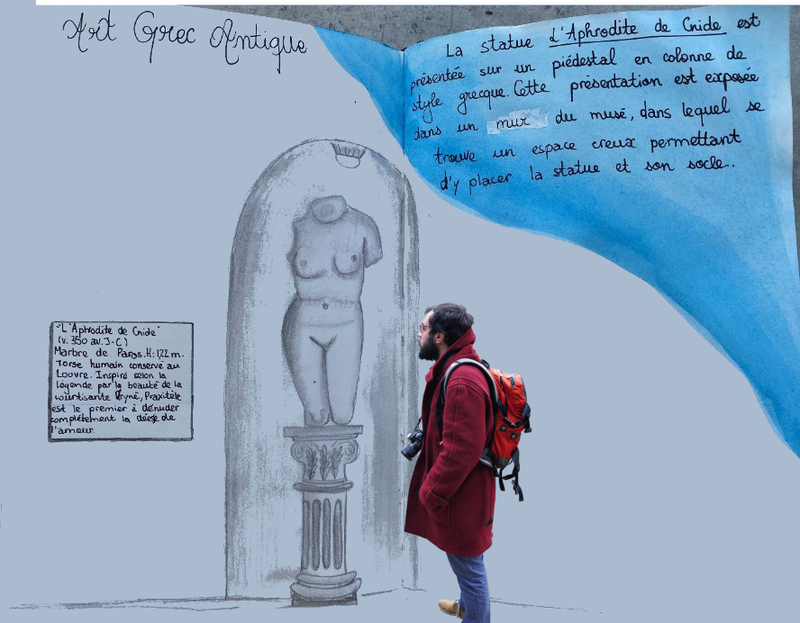 Art Grec Antique
La statue L'Aphrodite de Cnide est
présentée sur un piédestal en colonne de
style grecque. Cette présentation est exposée
dans un mur du musé, dans lequel se
trouve un espace creux permettant
d'y placer la statue et son socle.
"L'Aphrodite de Cnide"
(v. 350 av. J-C)
Marbre de Paros. H: 1,22 m.
Torse humain conservé au
Louvre. Inspiré selon la
légende par la beauté de la
courtisante Phryné, Praxitèle
est le premier à dénuder
complètement la déesse de
l'amour.